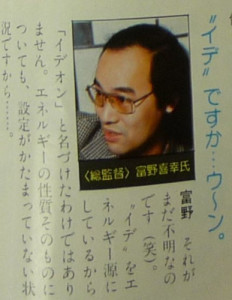 〝イデ〟ですか…ウ〜ン。
〈総監督〉富野喜幸氏
富野　それが
まだ不明なの
です（笑）。
〝イデ〟をエ
ネルギー源に
しているから
「イデオン」と名づけたわけではあり
ません。エネルギーの性質そのものに
ついても、設定がかたまっていない状
況ですから……。